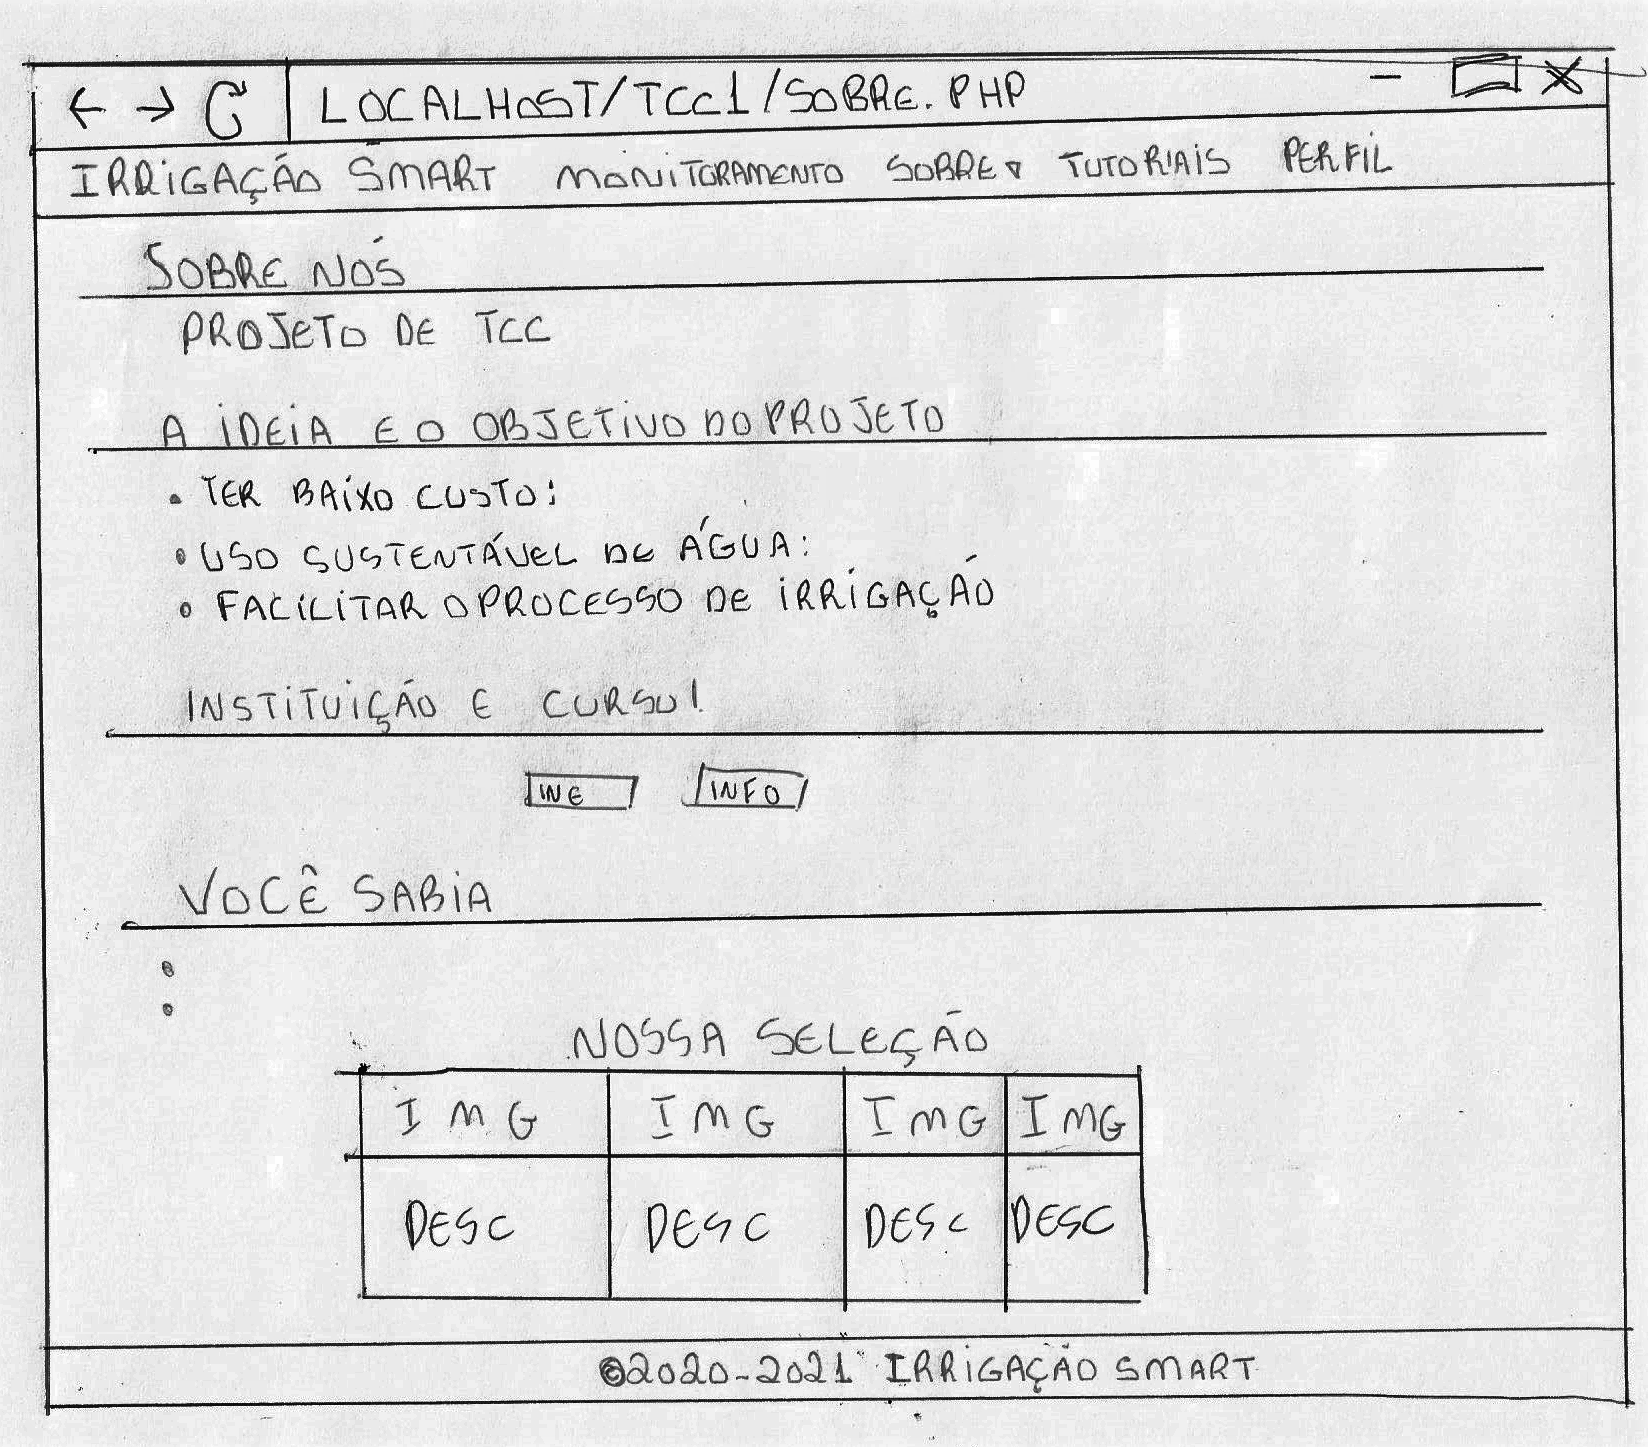 LOCALHOST/TCC1/SOBRE.PHP
IRRIGAÇÃO SMART MONITORAMENTO SOBRE TUTORIAIS PERFIL
SOBRE NÓS
PROJETO DE TCC
A IDEIA E O OBJETIVO DO PROJETO
• TER BAIXO CUSTO;
• USO SUSTENTÁVEL DE ÁGUA;
• FACILITAR O PROCESSO DE IRRIGAÇÃO
INSTITUIÇÃO E CURSO!
INFO
VOCÊ SABIA
•
•
NOSSA SELEÇÃO
IMG IMG IMG IMG
DESC DESC DESC DESC
©2020-2021 IRRIGAÇÃO SMART